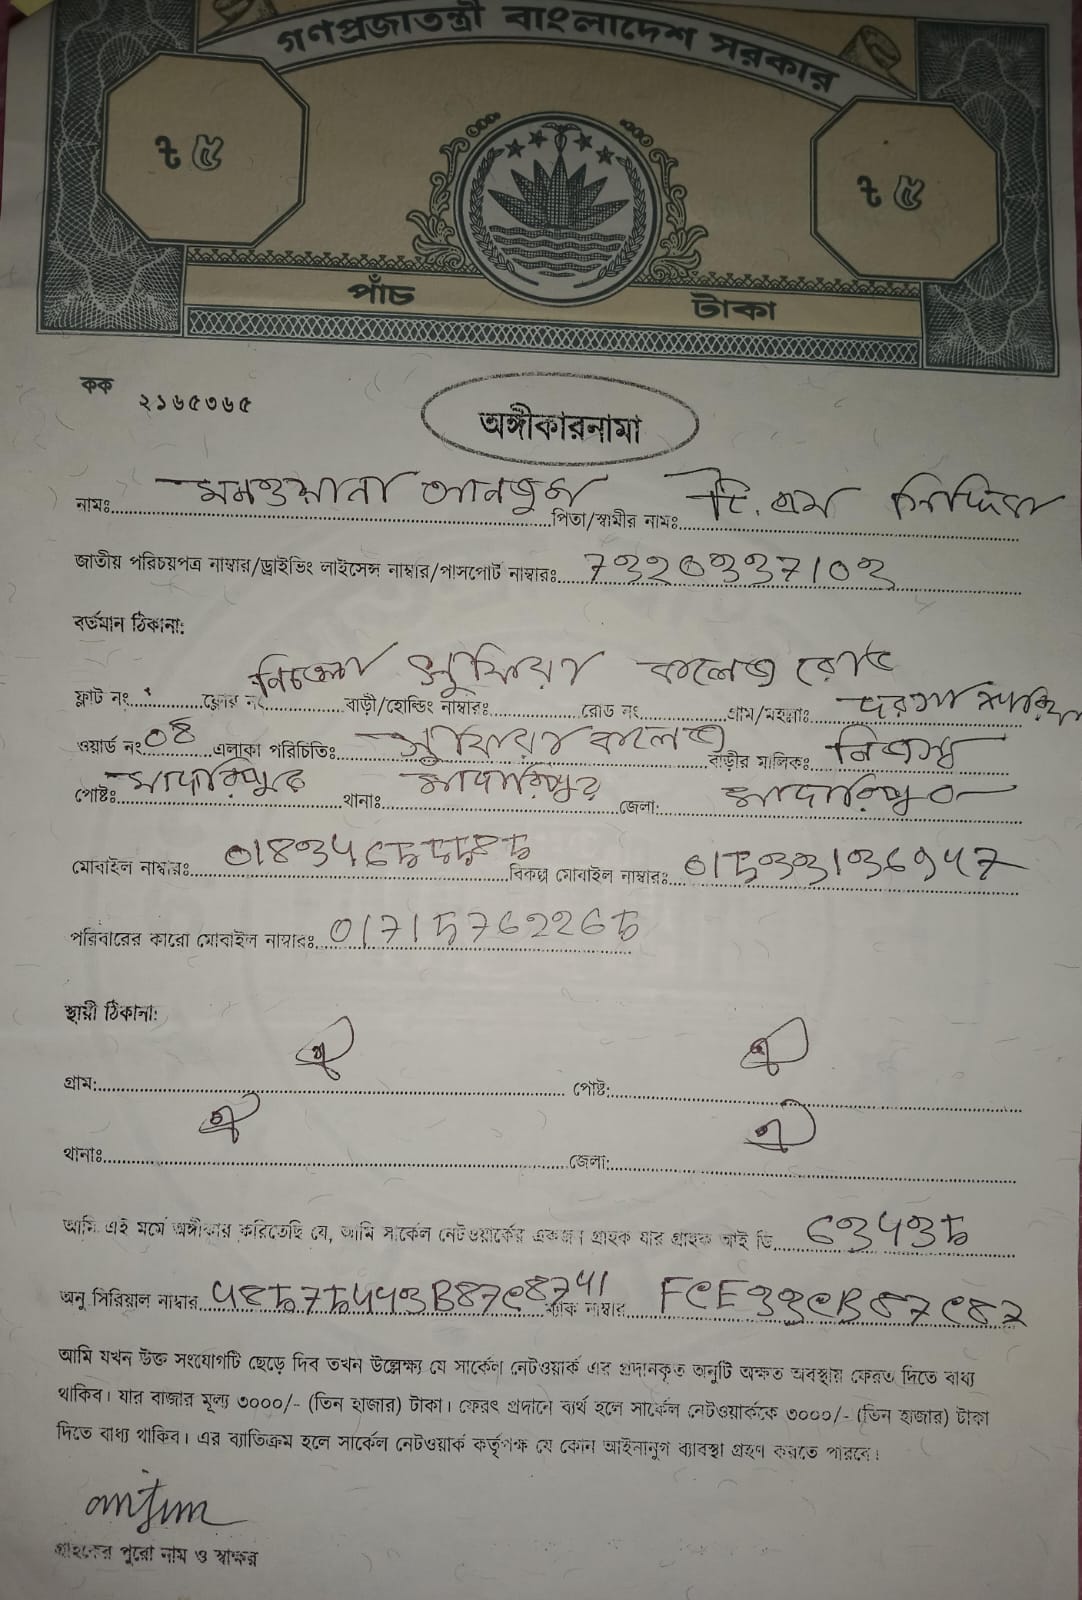 গণপ্রজাতন্ত্রী বাংলাদেশ সরকার
৳ ৫
৳ ৫
পাঁচ টাকা
কক ২১৬৫৩৬৫
অঙ্গীকারনামা
নামঃ আনজুম পিতা/স্বামীর নামঃ টি. এম
জাতীয় পরিচয়পত্র নাম্বার/ড্রাইভিং লাইসেন্স নাম্বার/পাসপোর্ট নাম্বারঃ
বর্তমান ঠিকানা:
নিচতলা সুফিয়া কলেজ রোড
ফ্লাট নং ফ্লোর নং বাড়ী/হোল্ডিং নাম্বারঃ রোড নং গ্রাম/মহল্লাঃ দরগা শরিফ
ওয়ার্ড নং 04 এলাকা পরিচিতিঃ সুফিয়া কলেজ বাড়ীর মালিকঃ নিজস্ব
পোষ্টঃ মাদারিপুর থানাঃ মাদারিপুর জেলা: মাদারিপুর
মোবাইল নাম্বারঃ বিকল্প মোবাইল নাম্বারঃ
পরিবারের কারো মোবাইল নাম্বারঃ 01715762265
স্থায়ী ঠিকানা:
গ্রাম: ঐ পোষ্ট: ঐ
থানাঃ ঐ জেলা: ঐ
আমি এই মর্মে অঙ্গীকার করিতেছি যে, আমি সার্কেল নেটওয়ার্কের একজন গ্রাহক যার গ্রাহক আই ডি 63435
অনু সিরিয়াল নাম্বার ম্যাক নাম্বার
আমি যখন উক্ত সংযোগটি ছেড়ে দিব তখন উল্লেক্ষ্য যে সার্কেল নেটওয়ার্ক এর প্রদানকৃত অনুটি অক্ষত অবস্থায় ফেরত দিতে বাধ্য
থাকিব। যার বাজার মূল্য ৩০০০/- (তিন হাজার) টাকা। ফেরৎ প্রদানে ব্যর্থ হলে সার্কেল নেটওয়ার্ককে ৩০০০/- (তিন হাজার) টাকা
দিতে বাধ্য থাকিব। এর ব্যাতিক্রম হলে সার্কেল নেটওয়ার্ক কর্তৃপক্ষ যে কোন আইনানুগ ব্যাবস্থা গ্রহণ করতে পারবে।
anjum
গ্রাহকের পুরো নাম ও স্বাক্ষর